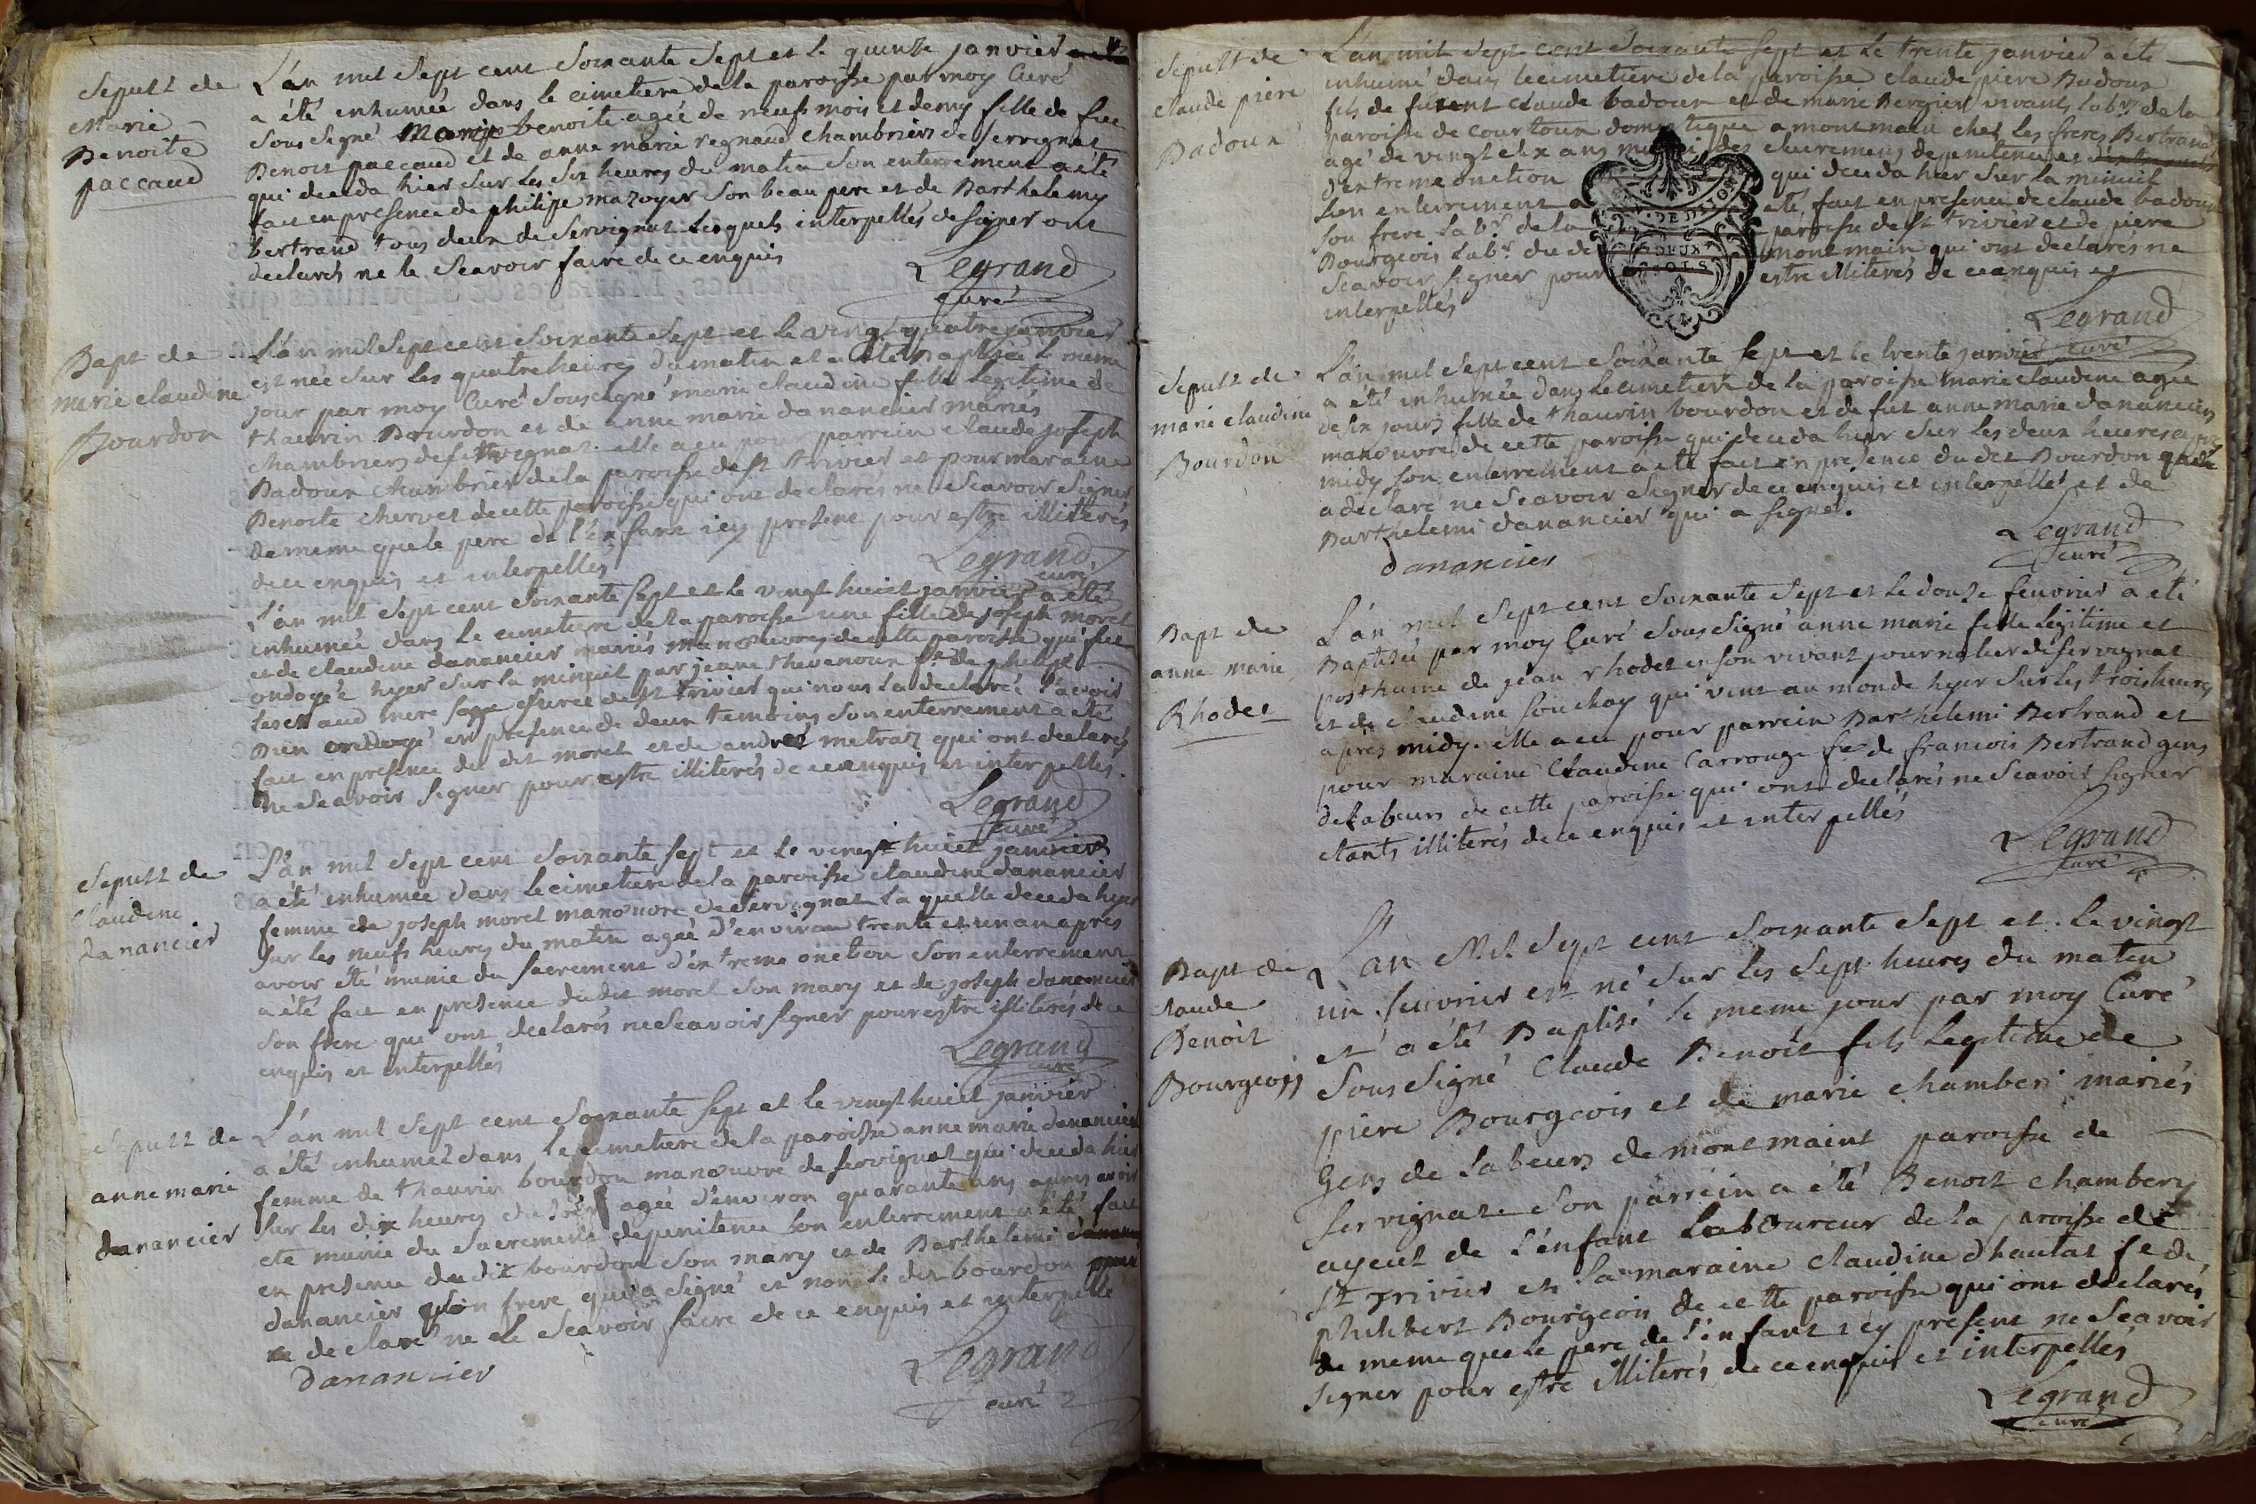 Sepult de
Marie
Benoite
paccaud
L'an mil sept cent soixante sept et le quinze janvier
a été enhumée dans le cimetiere de la paroisse par moy Curé
sous signé Marie benoite agée de neufs mois et demy fille de feu
Benoit paccaud et de anne marie regnaud chambriers de servignat
qui deceda hier sur les six heures du matin son enterrement a été
fait en presence de philipe mazoyer son beau pere et de Barthelemy
bertrand tous deux de Servignat lesquels interpellés de signer ont
declarés ne le Scavoir faire de ce enquis
Legrand
curé
Bapt de
marie claudine
Bourdon
L'an mil sept cent soixante sept et le vingt quatre janvier
est née sur les quatre heures du matin et a été Baptisée le meme
jour par moy Curé soussigné marie claudine fille legitime de
thaurin Bourdon et de anne marie danancier mariés
chambriers de servignat. elle a eu pour parrein claude joseph
Badoux chambrier de la paroisse de st trivier et pour maraine
Benoite chervet de cette paroisse qui ont declarés ne Scavoir signer
de meme que le pere de l'enfant icy present pour estre illiterés
de ce enquis et interpellés
Legrand
curé
L'an mil sept cent soixante sept et le vingt huict janvier a été
inhumée dans le cimetiere de la paroisse une fille de joseph morel
et de claudine danancier mariés manoeuvres de cette paroisse qui fut
ondoyée hyer sur la minuit par jeane thevenoux fe de philipe
mere sage de st trivier qui nous la declarée l'avoir
Bien ondoyé en presence de deux temoins son enterrement a été
fait en presence du dit morel et de andré metraz qui ont declarés
ne Scavoir signer pour estre illiterés de ce enquis et interpellés.
Legrand
curé
Sepult de
claudine
danancier
L'an mil sept cent soixante sept et le vingt huict janvier
a été inhumée dans le cimetiere de la paroisse claudine danancier
femme de joseph morel manoeuvre de Servignat laquelle deceda hyer
sur les neufs heures du matin agée d'environ trente et un an apres
avoir été munie du sacrement d'extreme onction son enterrement
a été fait en presence du dit morel son mary et de joseph danancier
son frere qui ont declarés ne Scavoir signer pour estre illiterés de ce
enquis et interpellés
Legrand
curé
Sepult de
anne marie
danancier
L'an mil sept cent soixante sept et le vingt huict janvier
a été inhumée dans le cimetiere de la paroisse anne marie danancier
femme de thaurin bourdon manoeuvre de servignat qui deceda hier
sur les dix heures du soir agée d'environ quarante ans apres avoir
ete munie du sacrement de penitence son enterrement a été fait
en presence du dit bourdon son mary et de Barthelemi
danancier son frere qui a signé et non le dit bourdon
declaré ne le Scavoir faire de ce enquis et interpellé
danancier
Legrand
curé
Sepult de
claude piere
Badoux
L'an mil sept cent soixante sept et le trente janvier a eté
inhumé dans le cimetiere de la paroisse claude piere Badoux
fils de furent claude badoux et de marie Bergier vivants labrs de la
paroisse de courtoux domestique a montmain chez les freres Bertrand
agé de vingt et ans des sacremens de penitence et
d'extreme onction qui deceda hier sur la minuit
son enterrement a eté fait en presence de claude badoux
son frere labr de la paroisse de st trivier et de piere
Bourgeois labr du de montmain qui ont declarés ne
Scavoir signer pour estre illiterés de ce enquis et
interpellés
Legrand
curé
Sepult de
marie claudine
Bourdon
L'an mil sept cent soixante sept et le trente janvier
a été inhumée dans le cimetiere de la paroisse marie claudine agée
de six jours fille de thaurin bourdon et de fut anne marie danancier
manouvre de cette paroisse qui deceda hier sur les deux heures apres
midy son enterrement a eté fait en presence du dit Bourdon
a declaré ne scavoir signer de ce enquis et interpellé et de
Barthelemi danancier qui a signé.
danancier
Legrand
curé
Bapt de
anne marie
Rhodet
L'an mil sept cent soixante sept et le douze feuvrier a eté
Baptisée par moy Curé sous signé anne marie fille légitime et
posthume de jean rhodet en son vivant journalier de servignat
et de claudine souchay qui vint au monde hyer sur les trois heures
apres midy. elle a eu pour parrein Barthelemi Bertrand et
pour maraine Claudine Carronge fe de francois Bertrand gens
de labeurs de cette paroisse qui ont declarés ne Scavoir signer
etants illiterés de ce enquis et interpellés
Legrand
curé
Bapt de
claude
Benoit
Bourgeois
L'an Mil sept cent soixante sept et le vingt
un feuvrier est né sur les sept heures du matin
et a été Baptisé le meme jour par moy Curé
sous signé Claude Benoit fils legitime de
piere Bourgeois et de marie chamberi mariés
gens de labeurs de montmaint paroisse de
servignat son parrein a été Benoit chambery
ayeul de l'enfant laboureur de la paroisse de
st trivier et sa maraine claudine dhautat fe de
philibert Bourgeois de cette paroisse qui ont declarés
de meme que le pere de l'enfant icy present ne Scavoir
signer pour estre illiterés de ce enquis et interpellés
Legrand
curé